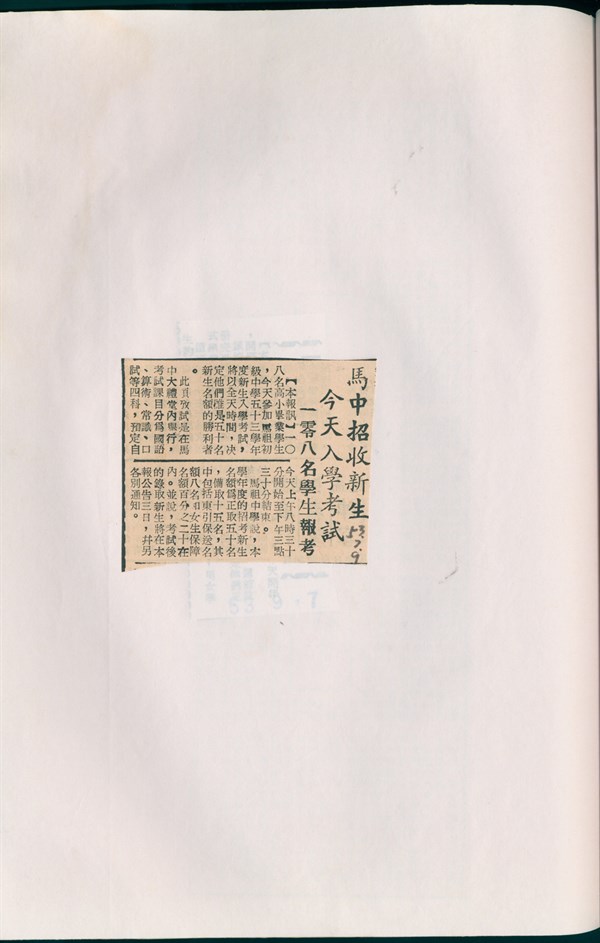 馬中招收新生
今天入學考試
一零八名學生報考
53.7.9
【本報訊】一〇
八名高小畢業學生
，今天參加馬祖初
級中學五十三學年
度新生入學考試，
將以全天時間，决
定他們誰是五十名
新生名額的勝利者
。
此項攷試是在馬
中大禮堂內舉行，
考試課目分為國語
、算術、常識、口
試等四科，預定自
今天上午八時三十
分開始至下午三點
三十分結束。
馬祖中學說，本
學年度的招考新生
名額為正取五十名
，備取十五名，其
中包括東引保送名
額八名和女生保障
名額百分之二十在
內。並說，考試後
的錄取新生將在本
報公告三日，幷另
各別通知。
53 9.7